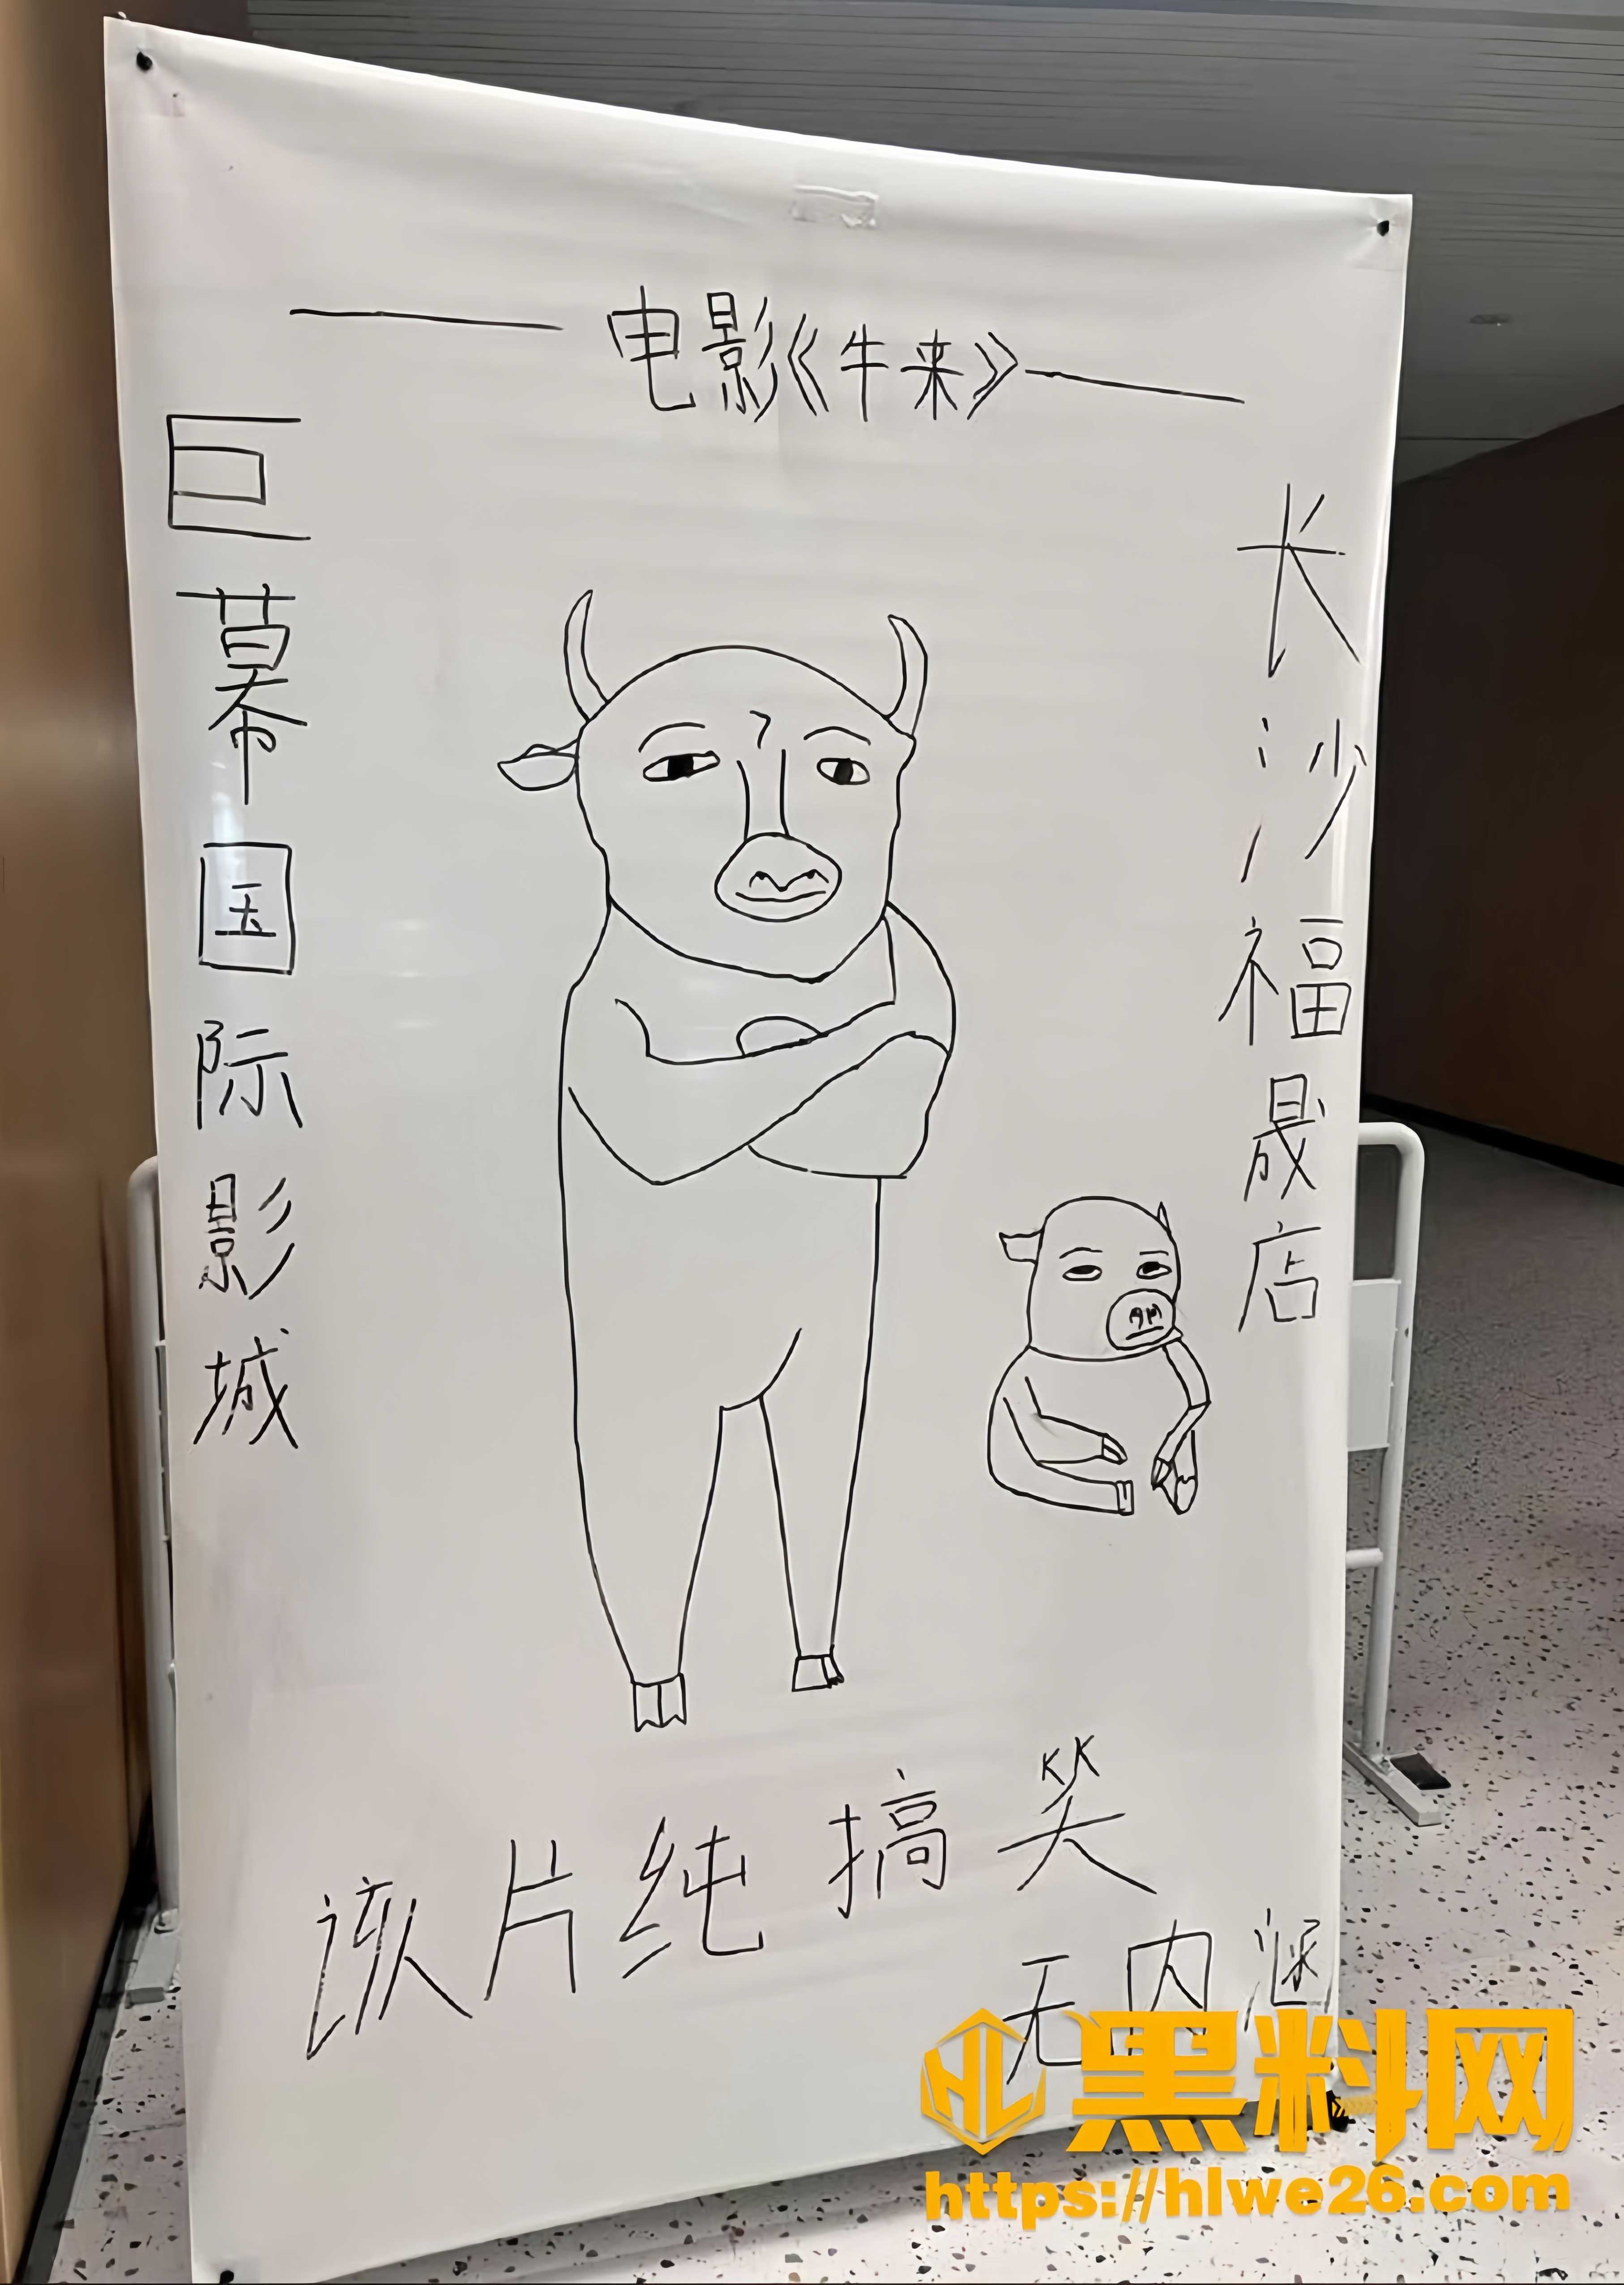 电影《牛来》
巨幕国际影城
长沙福晟店
该片纯搞笑
无内涵
HL 黑料网
https://hlwe26.com